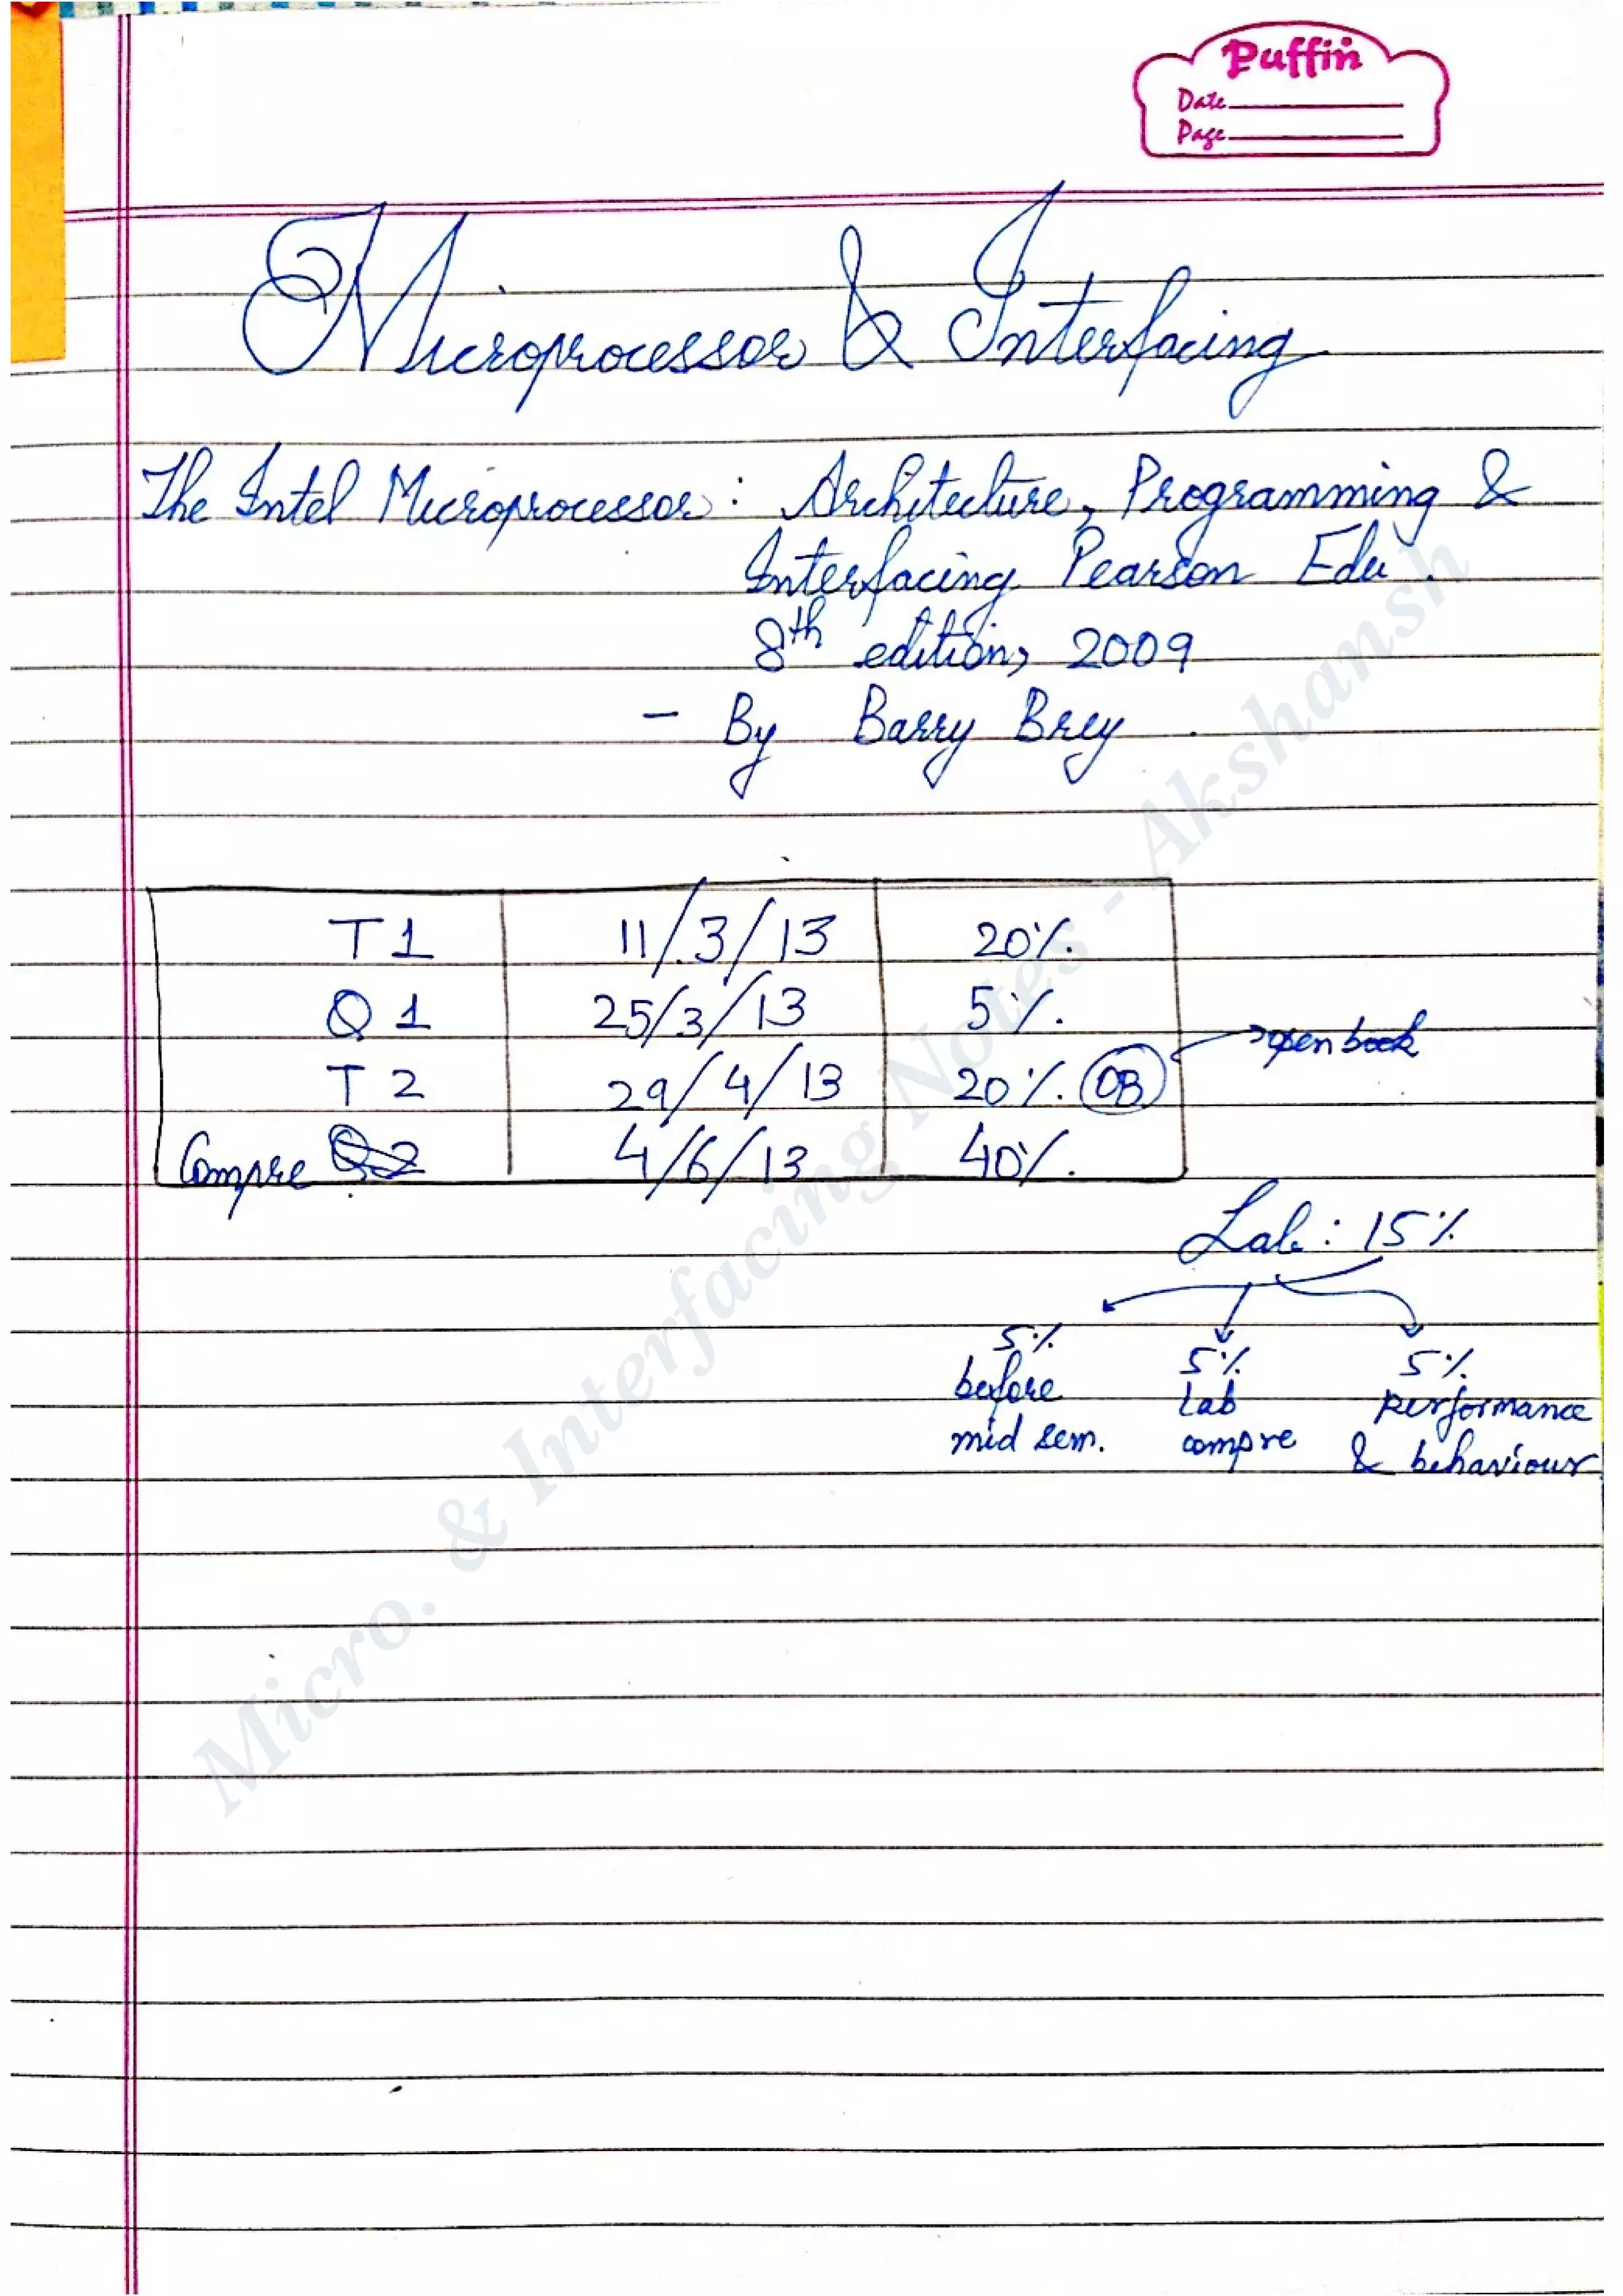 Puffin
Date
Page
Microprocessor & Interfacing
The Intel Microprocessor : Architecture, Programming &
Interfacing Pearson Edu.
8th edition, 2009
- By Barry Brey.
T1 11/3/13 20%.
Q1 25/3/13 5%.
T2 29/4/13 20%. OB → open book
Compre Q2 4/6/13 40%.
Lab : 15%
5% 5% 5%
before Lab performance
mid sem. compre & behaviour
Micro. & Interfacing Notes - Akshansh